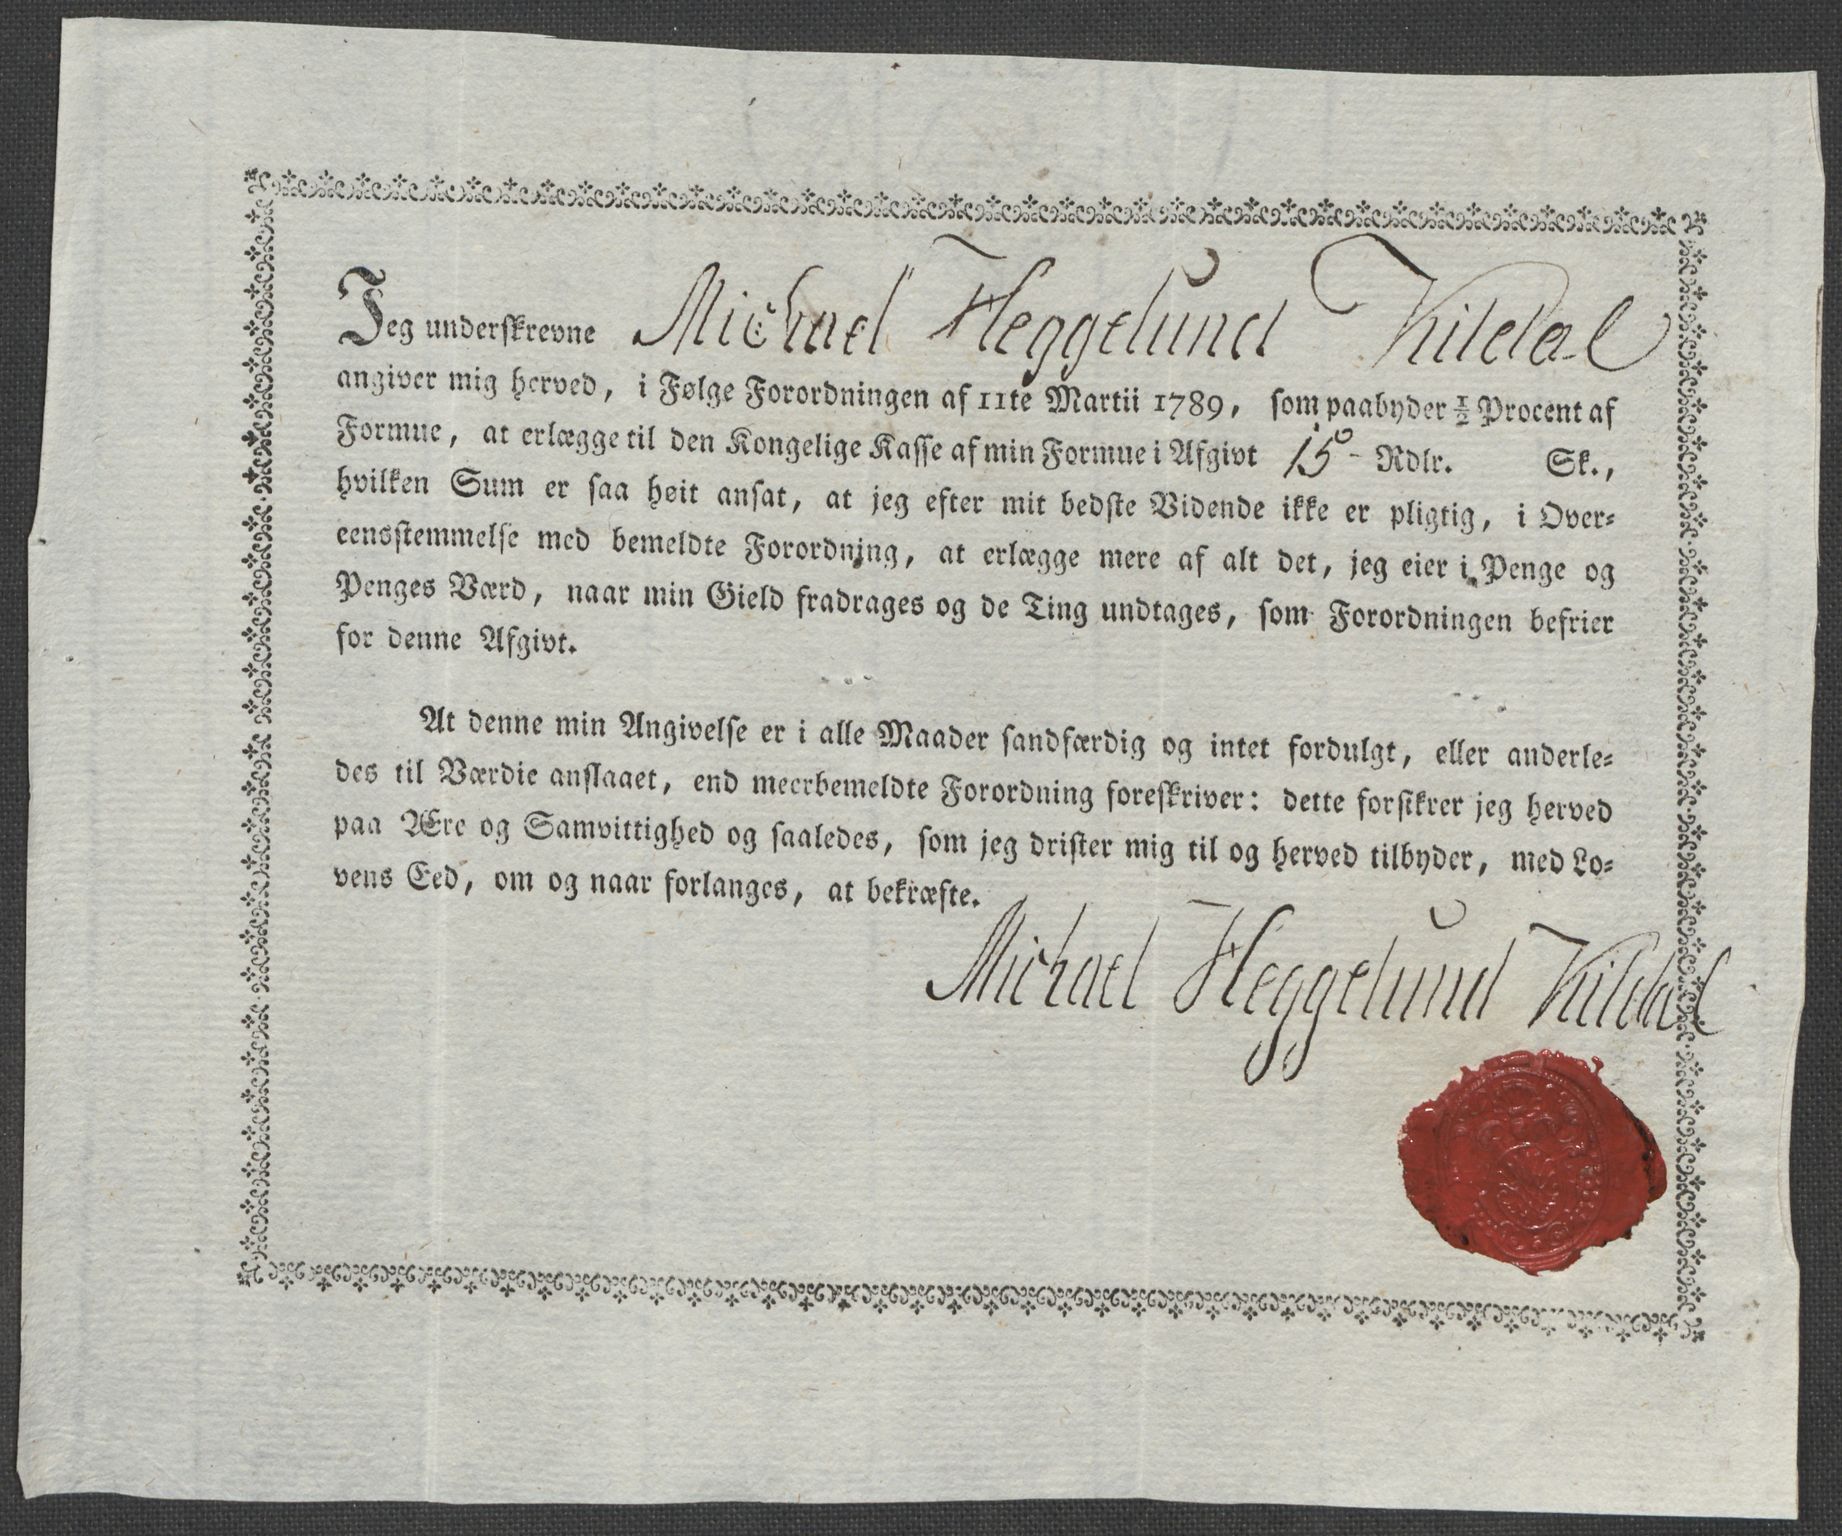 Jeg underskrevne Michael Heggelund Kildal
angiver mig herved, i Følge Forordningen af 11te Martii 1789, som paabyder ½ Procent af
Formue, at erlægge til den Kongelige Kasse af min Formue i Afgivt 15 - Rdlr. Sk.,
hvilken Sum er saa høit ansat, at jeg efter mit bedste Vidende ikke er pligtig, i Over=
eensstemmelse med bemeldte Forordning, at erlægge mere af alt det, jeg eier i Penge og
Penges Værd, naar min Gield fradrages og de Ting undtages, som Forordningen befrier
for denne Afgivt.
At denne min Angivelse er i alle Maader sandfærdig og intet fordulgt, eller anderle=
des til Værdie anslaaet, end meerbemeldte Forordning foreskriver: dette forsikrer jeg herved
paa Ære og Samvittighed og saaledes, som jeg drister mig til og herved tilbyder, med Lo=
vens Eed, om og naar forlanges, at bekræfte.
Michael Heggelund Kildal